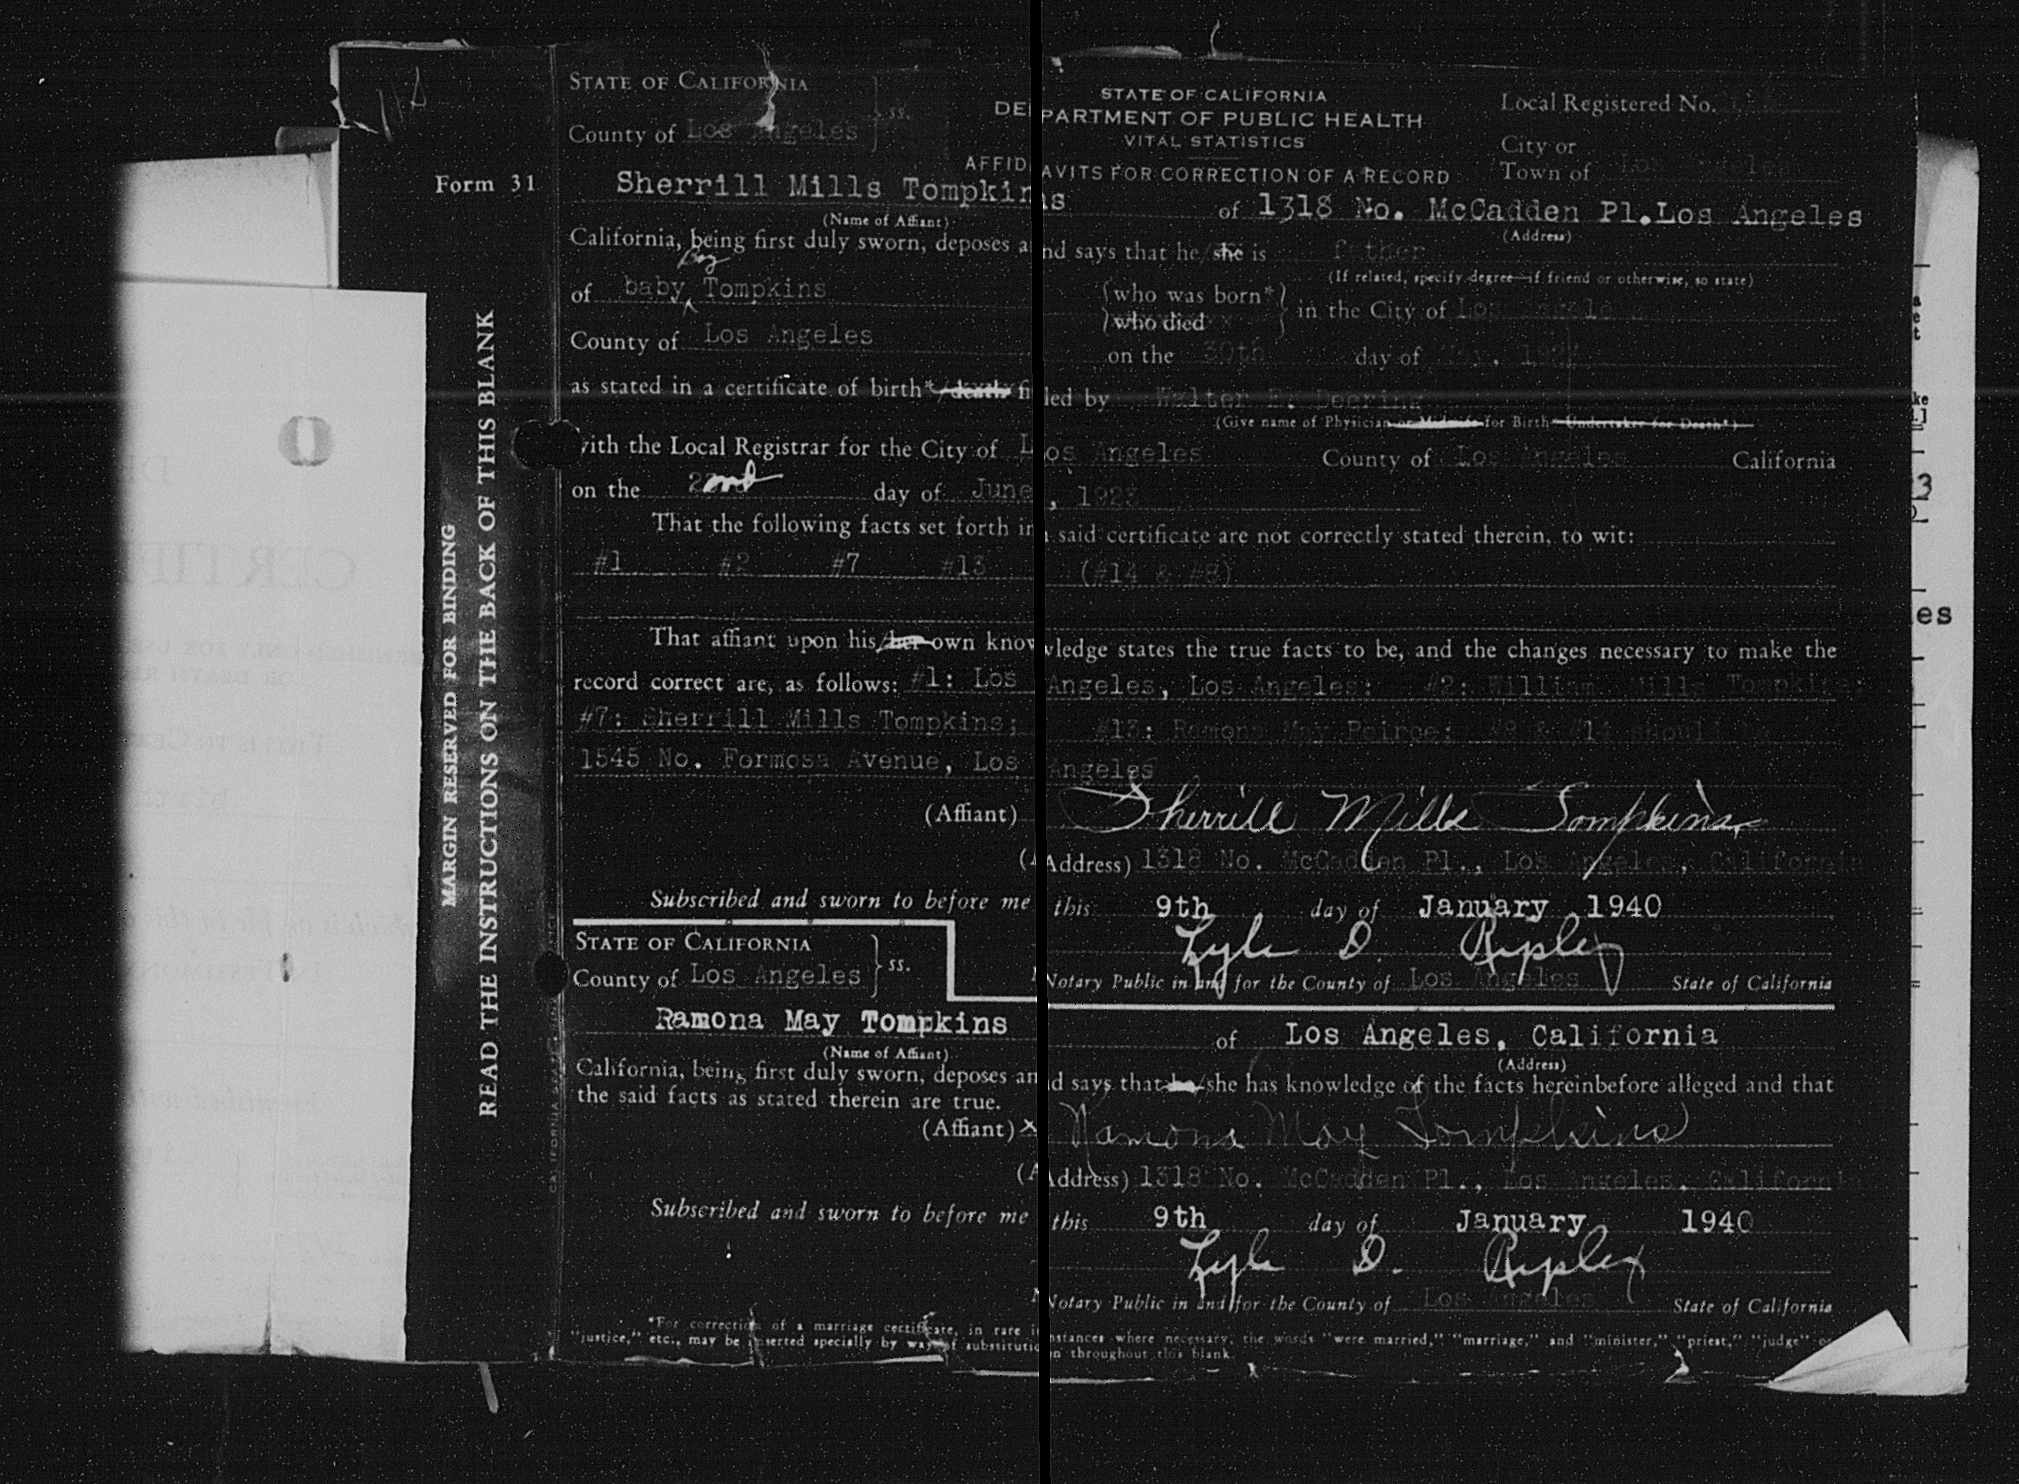 STATE OF CALIFORNIA
County of Los Angeles } ss.
STATE OF CALIFORNIA
DEPARTMENT OF PUBLIC HEALTH
VITAL STATISTICS
AFFIDAVITS FOR CORRECTION OF A RECORD
Local Registered No.
City or
Town of Los Angeles
Form 31
MARGIN RESERVED FOR BINDING
READ THE INSTRUCTIONS ON THE BACK OF THIS BLANK
Sherrill Mills Tompkins of 1318 No. McCadden Pl.Los Angeles
(Name of Affiant) (Address)
California, being first duly sworn, deposes and says that he/she is father
(If related, specify degree—if friend or otherwise, so state)
of baby boy Tompkins {who was born* who died} in the City of Los Angeles
County of Los Angeles on the 30th day of May,
as stated in a certificate of birth*/death filed by Walter F. Deering
(Give name of Physician or Midwife for Birth Undertaker for Death*)
with the Local Registrar for the City of Los Angeles County of Los Angeles California
on the 22nd day of June, 1923
That the following facts set forth in said certificate are not correctly stated therein, to wit:
#1 #2 #7 #13 (#14 & #8)
That affiant upon his/her own knowledge states the true facts to be, and the changes necessary to make the
record correct are, as follows: #1: Los Angeles, Los Angeles: #2: William Mills Tompkins
#7: Sherrill Mills Tompkins; #13: Ramona May Peirce; #8 & #14 should
1545 No. Formosa Avenue, Los Angeles
(Affiant) Sherrill Mills Tompkins
(Address) 1318 No. McCadden Pl., Los Angeles, California
Subscribed and sworn to before me this 9th day of January 1940
Lyle D. Ripley
Notary Public in and for the County of Los Angeles State of California
STATE OF CALIFORNIA
County of Los Angeles } ss.
Ramona May Tompkins of Los Angeles, California
(Name of Affiant) (Address)
California, being first duly sworn, deposes and says that he/she has knowledge of the facts hereinbefore alleged and that
the said facts as stated therein are true.
(Affiant) x Ramona May Tompkins
(Address) 1318 No. McCadden Pl., Los Angeles, California
Subscribed and sworn to before me this 9th day of January 1940
Lyle D. Ripley
Notary Public in and for the County of Los Angeles State of California
*For correction of a marriage certificate, in rare instances where necessary, the words "were married," "marriage," and "minister," "priest," "judge" or
"justice," etc., may be inserted specially by way of substitution throughout this blank.